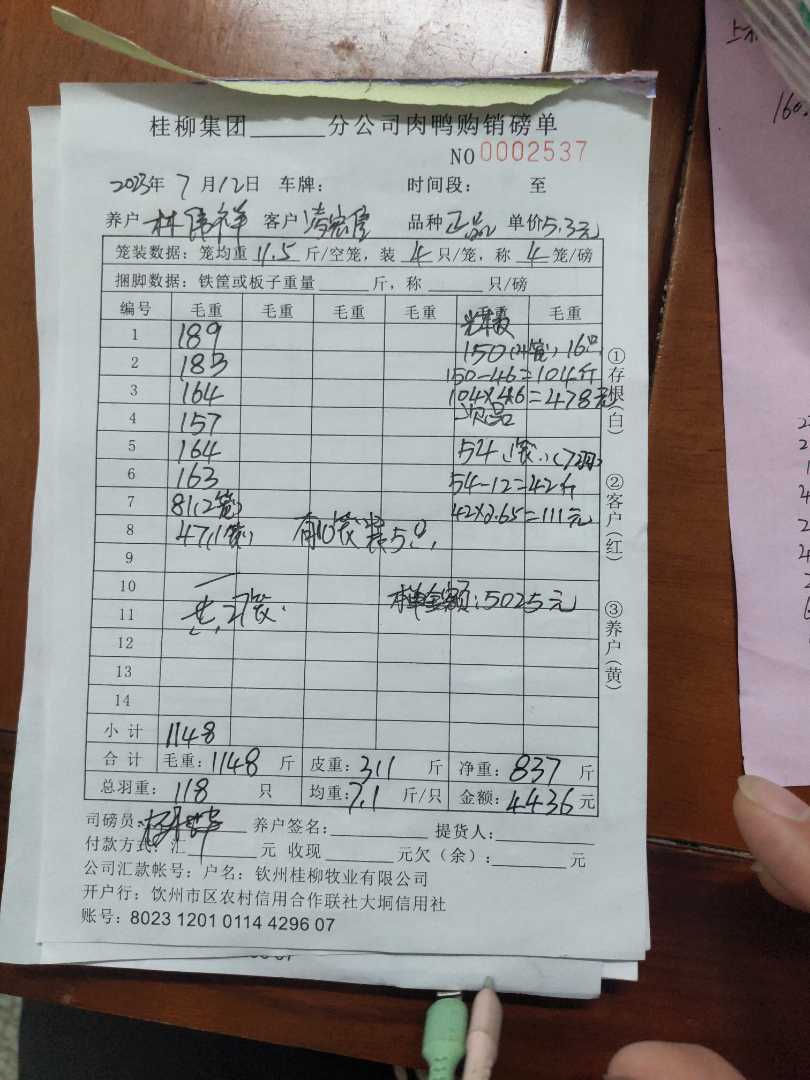 桂柳集团______分公司肉鸭购销磅单
NO 0002537
2023年 7月12日 车牌: 时间段: 至
养户 林伟祥 客户 凌宏 品种 正品 单价5.3元
笼装数据:笼均重 11.5 斤/空笼,装 4 只/笼,称 4 笼/磅
捆脚数据:铁筐或板子重量______斤,称______只/磅
编号 毛重 毛重 毛重 毛重 毛重 毛重
1 189
150(4笼)16只
2 183
150-46=104斤
3 164
104×4.6=478元
4 157 次品
5 164 54(1笼)(7羽)
6 163 54-12=42斤
7 81(2笼) 42×2.65=111元
8 47(1笼) 有10笼装5只
9
10 本单金额:5025元
11 共27笼
12
13
14
小计 1148
合计 毛重:1148 斤 皮重:311 斤 净重:837 斤
总羽重:118 只 均重:7.1 斤/只 金额:4436元
①存根(白) ②客户(红) ③养户(黄)
司磅员: 养户签名: 提货人:
付款方式:汇______元 收现______元欠(余):______元
公司汇款帐号:户名:钦州桂柳牧业有限公司
开户行:钦州市区农村信用合作联社大垌信用社
账号:8023 1201 0114 4296 07
160.